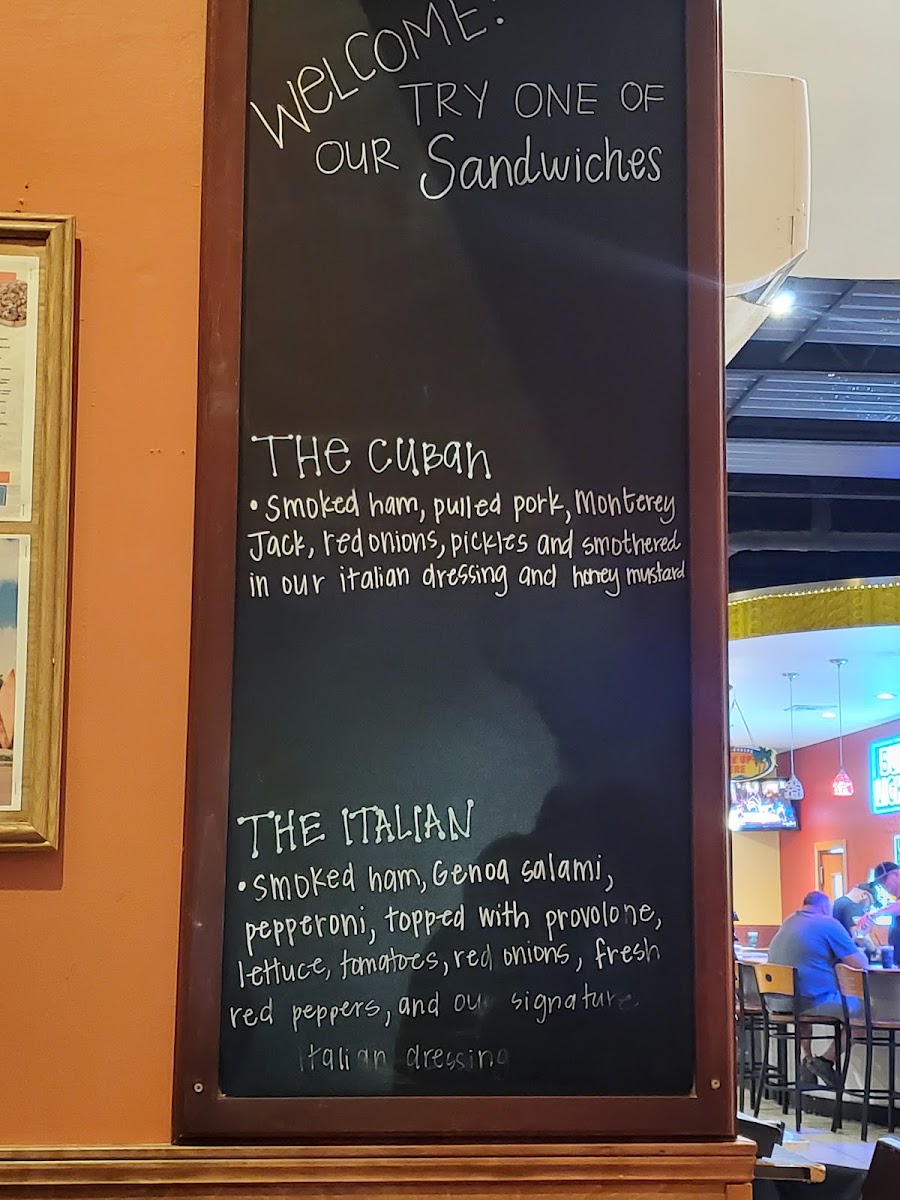 WELCOME!
TRY ONE OF
OUR Sandwiches
THE CUBAN
• Smoked ham, pulled pork, Monterey
Jack, red onions, pickles and smothered
in our italian dressing and honey mustard
THE ITALIAN
• Smoked ham, Genoa salami,
pepperoni, topped with provolone,
lettuce, tomatoes, red onions, fresh
red peppers, and our signature
Italian dressing